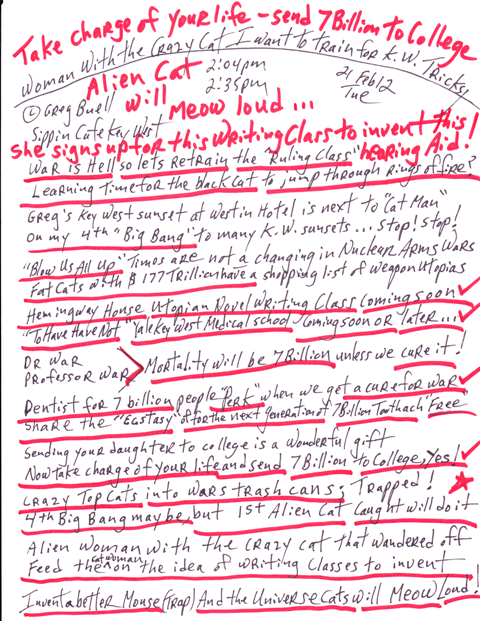 Take charge of your life - send 7Billion To College
Woman With the Crazy Cat I want to train for K.W. Tricks!
Alien Cat 2:04pm
2:35pm
21 Feb 12
Tue
© Greg Buell
will
Sippin Cafe Key West
Meow loud ...
She signs up for this Writing Class to invent this!
hearing Aid!
War is Hell so lets Retrain the "Ruling Class"
Learning Time for the black cat to jump through rings of fire?
Greg's Key West sunset at Westin Hotel is next to "Cat Man"
On my 4th "Big Bang" to many K.W. sunsets ... Stop! Stop!
"Blow Us All Up" Times are not a changing in Nuclear Arms Wars
Fat Cats with $177 Trillion have a shopping list of weapon utopias
Hemingway House Utopian Novel Writing Class Coming soon
"To Have Have Not" Yale Key West Medical school Coming soon or later ...
Dr War
Professor War > Mortality will be 7Billion unless we cure it!
Dentist for 7 billion people "Perk" when we get a cure for war
Share the "Egstasy" of for the next generation of 7Billion Toothach "Free"
Sending your daughter to college is a wonderful gift
Now take charge of your life and send 7Billion to College, Yes!
Crazy Top Cats into wars trash cans; Trapped!
4th Big Bang maybe, but 1st Alien Cat Caught will do it
Alien Woman with the crazy cat that wandered off
Feed the cat woman on the idea of writing classes to invent
Invent a better Mouse (Trap) And the Universe Cats will Meow Loud!